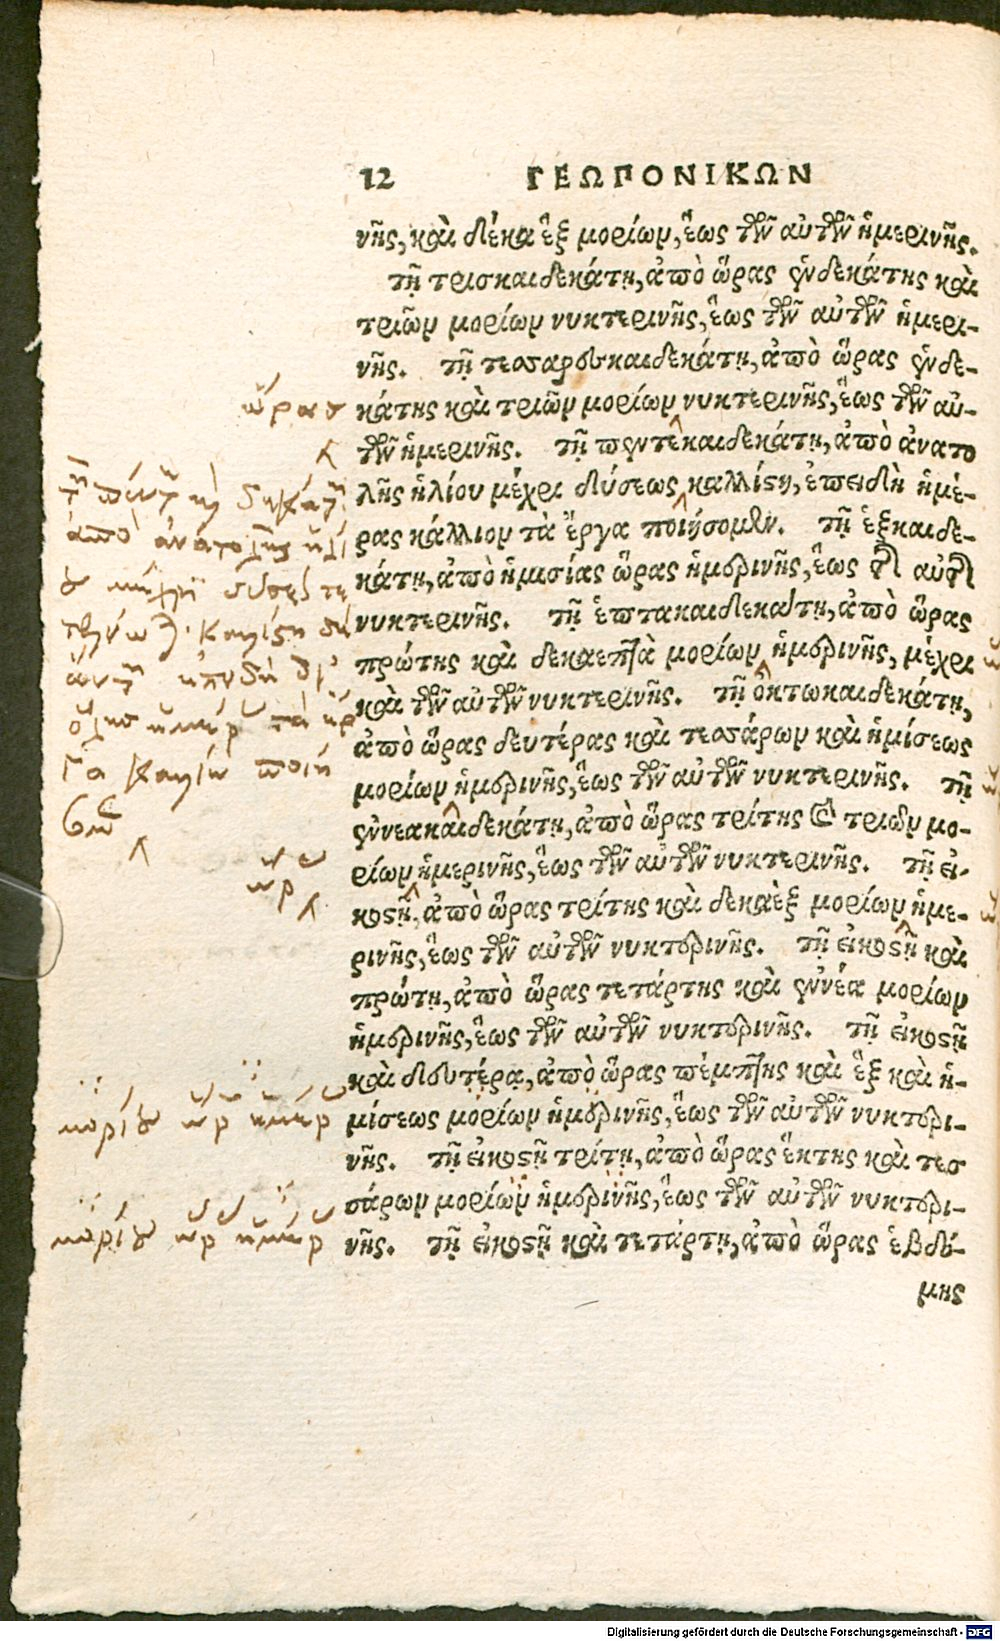 12 ΓΕΩΠΟΝΙΚΩΝ
νῆς, καὶ δέκα ἓξ μορίων, ἕως τῶν αὐτῶν ἡμερινῆς.
τῇ τρισκαιδεκάτῃ, ἀπὸ ὥρας ἑνδεκάτης καὶ
τριῶν μορίων νυκτερινῆς, ἕως τῶν αὐτῶν ἡμερι-
νῆς. τῇ τεσσαρεσκαιδεκάτῃ, ἀπὸ ὥρας ἑνδε-
ὥρας
κάτης καὶ τριῶν μορίων νυκτερινῆς, ἕως τῶν αὐ-
τῶν ἡμερινῆς. τῇ πεντεκαιδεκάτῃ, ἀπὸ ἀνατο
λῆς ἡλίου μέχρι δύσεως καλλίςη, ἐπειδὴ ἡμέ-
ρας κάλλιον τὰ ἔργα ποιήσομεν. τῇ ἑξκαιδε-
κάτῃ, ἀπὸ ἡμισίας ὥρας ἡμερινῆς, ἕως τῆς αὐτῆς
νυκτερινῆς. τῇ ἑπτακαιδεκάτῃ, ἀπὸ ὥρας
πρώτης καὶ δεκαεπτὰ μορίων ἡμερινῆς, μέχρι
καὶ τῶν αὐτῶν νυκτερινῆς. τῇ ὀκτωκαιδεκάτῃ,
ἀπὸ ὥρας δευτέρας καὶ τεσσάρων καὶ ἡμίσεως
μορίων ἡμερινῆς, ἕως τῶν αὐτῶν νυκτερινῆς. τῇ
ἐννεακαιδεκάτῃ, ἀπὸ ὥρας τρίτης καὶ τριῶν μο-
ρίων ἡμερινῆς, ἕως τῶν αὐτῶν νυκτερινῆς. τῇ εἰ-
κοςῇ, ἀπὸ ὥρας τρίτης καὶ δεκαὲξ μορίων ἡμε-
ρινῆς, ἕως τῶν αὐτῶν νυκτερινῆς. τῇ εἰκοςῇ καὶ
πρώτῃ, ἀπὸ ὥρας τετάρτης καὶ ἐννέα μορίων
ἡμερινῆς, ἕως τῶν αὐτῶν νυκτερινῆς. τῇ εἰκοςῇ
καὶ δευτέρᾳ, ἀπὸ ὥρας πέμπτης καὶ ἓξ καὶ ἡ-
μίσεως μορίων ἡμερινῆς, ἕως τῶν αὐτῶν νυκτερι-
νῆς. τῇ εἰκοςῇ τρίτῃ, ἀπὸ ὥρας ἕκτης καὶ τεσ
σάρων μορίων ἡμερινῆς, ἕως τῶν αὐτῶν νυκτερι-
νῆς. τῇ εἰκοςῇ καὶ τετάρτῃ, ἀπὸ ὥρας ἑβδό-
μης
Digitalisierung gefördert durch die Deutsche Forschungsgemeinschaft - DFG